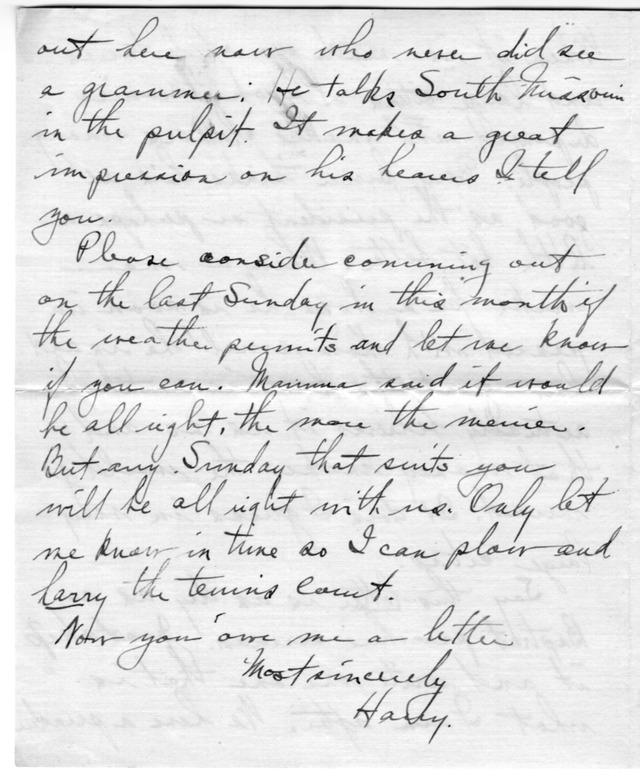 out here now who never did see
a grammer. He talks South Missouri
in the pulpit. It makes a great
impression on his hearers I tell
you.
Please consider comming out
on the last Sunday in this month if
the weather permits and let me know
if you can. Mamma said it would
be all right, the more the merrier.
But any Sunday that suits you
will be all right with us. Only let
me know in time so I can plow and
harry the tennis court.
Now you owe me a letter
Most sincerely
Harry.